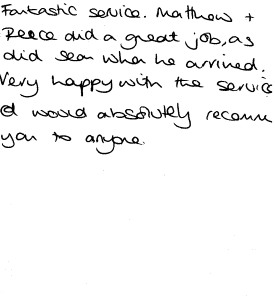 Fantastic service. Matthew +
Reece did a great job, as
did Sean when he arrived.
Very happy with the service
& would absolutely recomm
you to anyone.